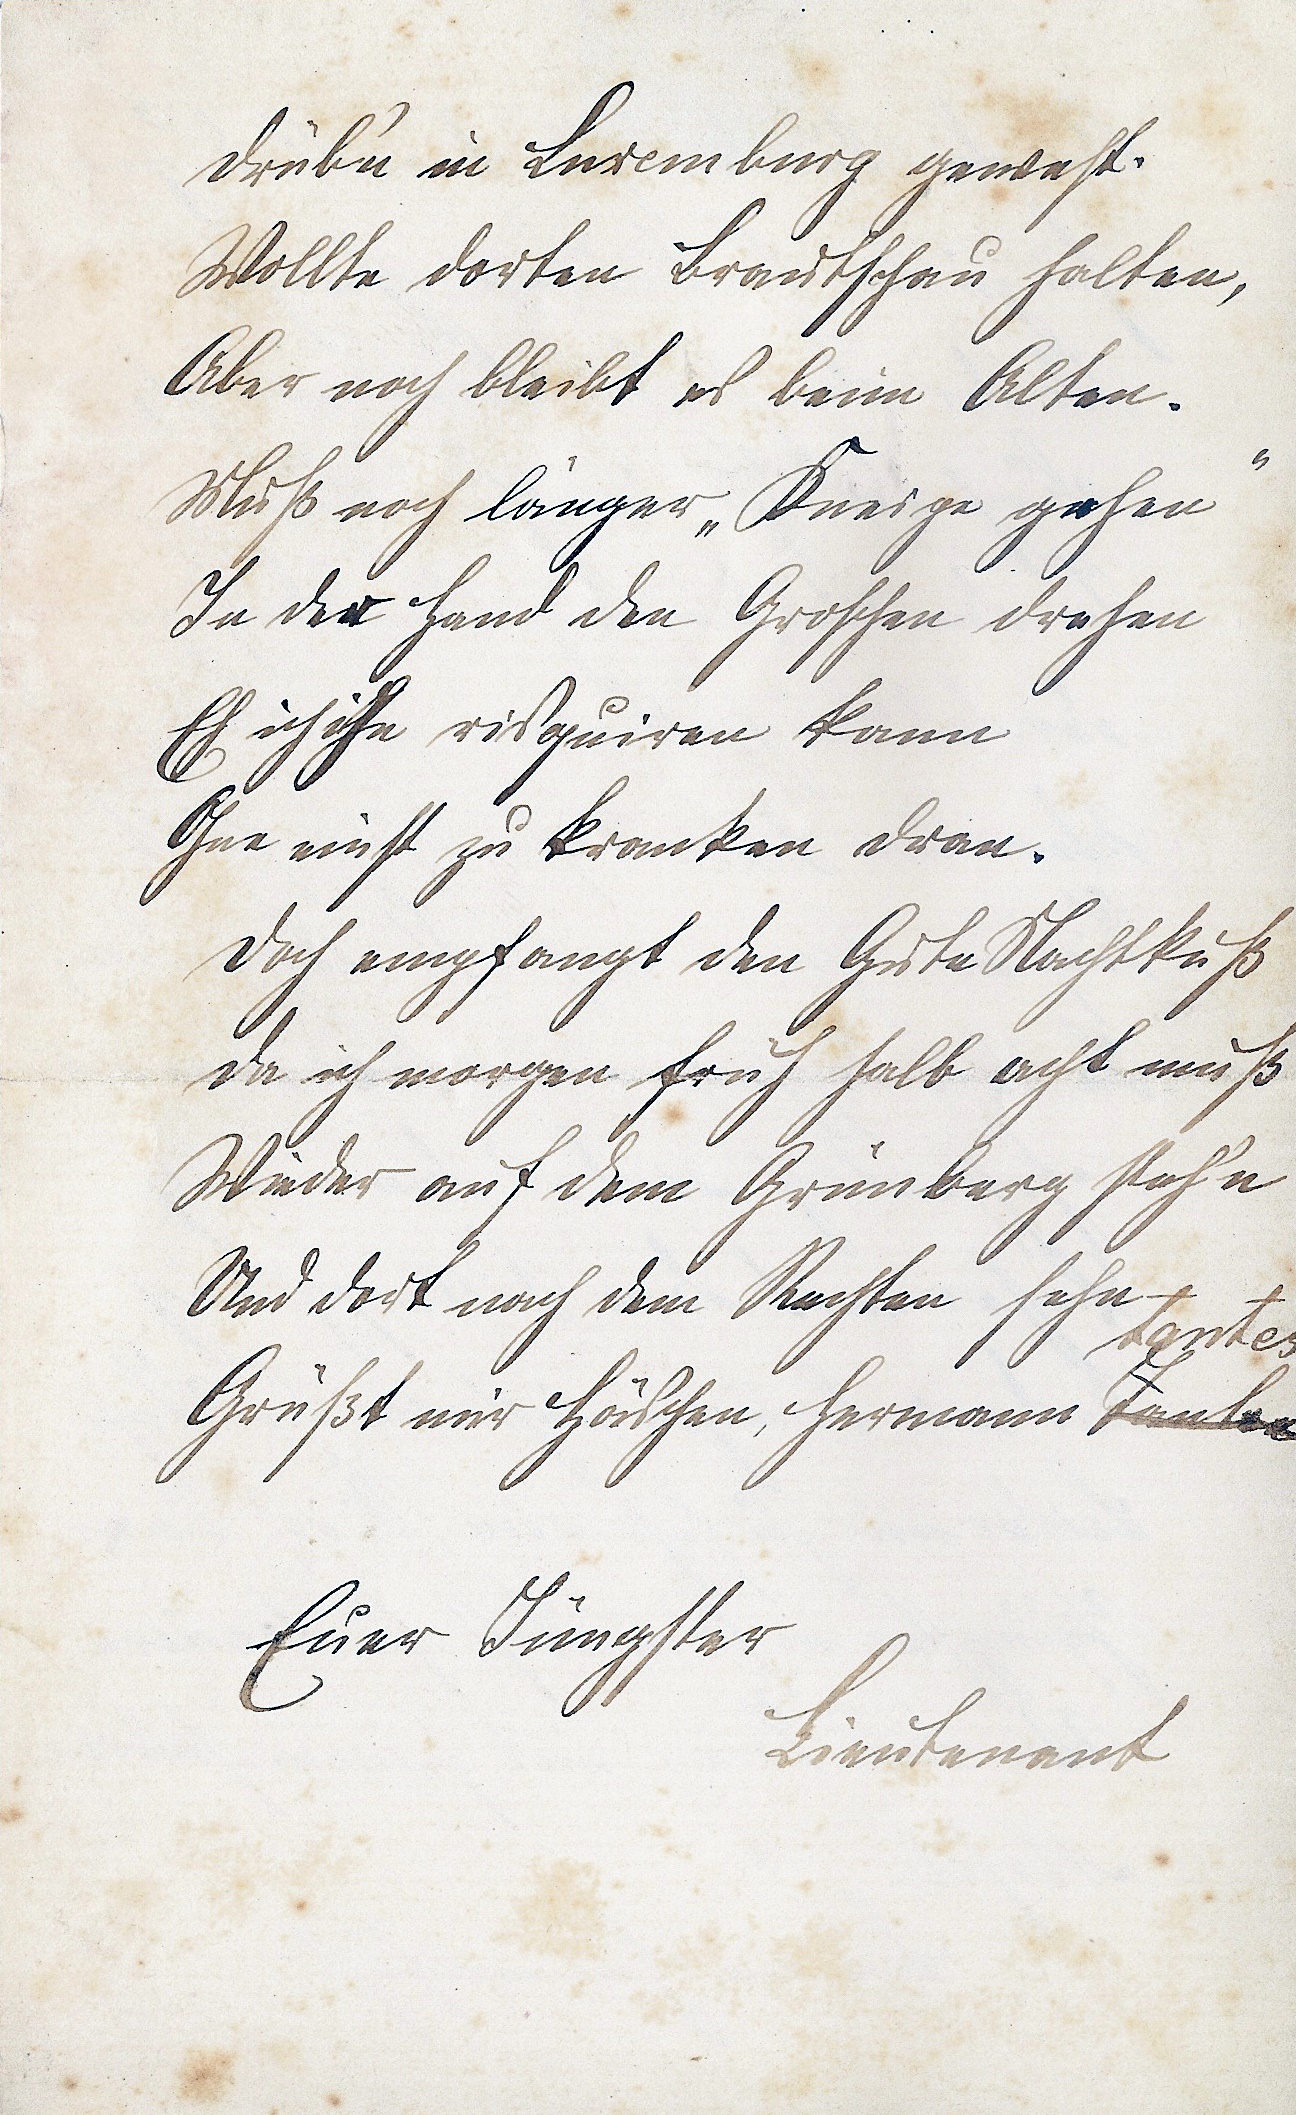 drüb'n in Luxemburg gewest.
Wollte dorten Brautschau halten,
Aber noch bleibt es beim Alten.
Muß noch länger „Kneipe gehen"
In der Hand den Groschen drehen
Eh ich ihn risquiren kann
Ohne einst zu kranken dran.
Doch empfangt den Gute Nachtkuß
Da ich morgen früh halb acht muß
Wieder auf dem Grünberg steh'n
Und dort nach dem Rechten sehn
tantes
Grüßt mir Höschen, Hermann Tanten
Euer Jüngster
Lieutenant